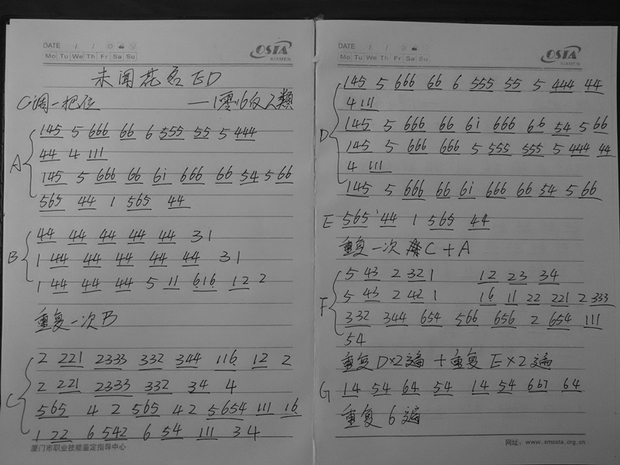 DATE / /
Mo Tu We Th Fr Sa Su
OSTA
未闻花名ED
C调一把位 ——1零16的人類
A
145 5 666 66 6 555 55 5 444
44 4 111
145 5 666 66 61 666 66 54 5 66
565 44 1 565 44
B
44 44 44 44 44 31
1 44 44 44 44 44 31
1 44 44 44 5 11 616 12 2
重复一次B
C
2 221 2333 332 344 116 12 2
2 221 2333 332 34 4
565 4 2 565 42 5654 111 16
1 22 6 542 6 54 111 34
厦门市职业技能鉴定指导中心
DATE / /
Mo Tu We Th Fr Sa Su
OSTA
D
145 5 666 66 6 555 55 5 444 44
4 111
145 5 666 66 61 666 66 54 5 66
145 5 666 666 5 555 555 5 444 44
4 111
145 5 666 66 61 666 66 54 5 66
E 565 44 1 565 44
重复一次 C+A
F
5 43 2 321 12 23 34
5 43 2 421 16 11 22 221 2 333
332 344 654 566 656 2 654 111
54
重复D×2遍+重复E×2遍
G 14 54 64 54 14 54 667 64
重复6遍
网址：www.xmosta.org.cn